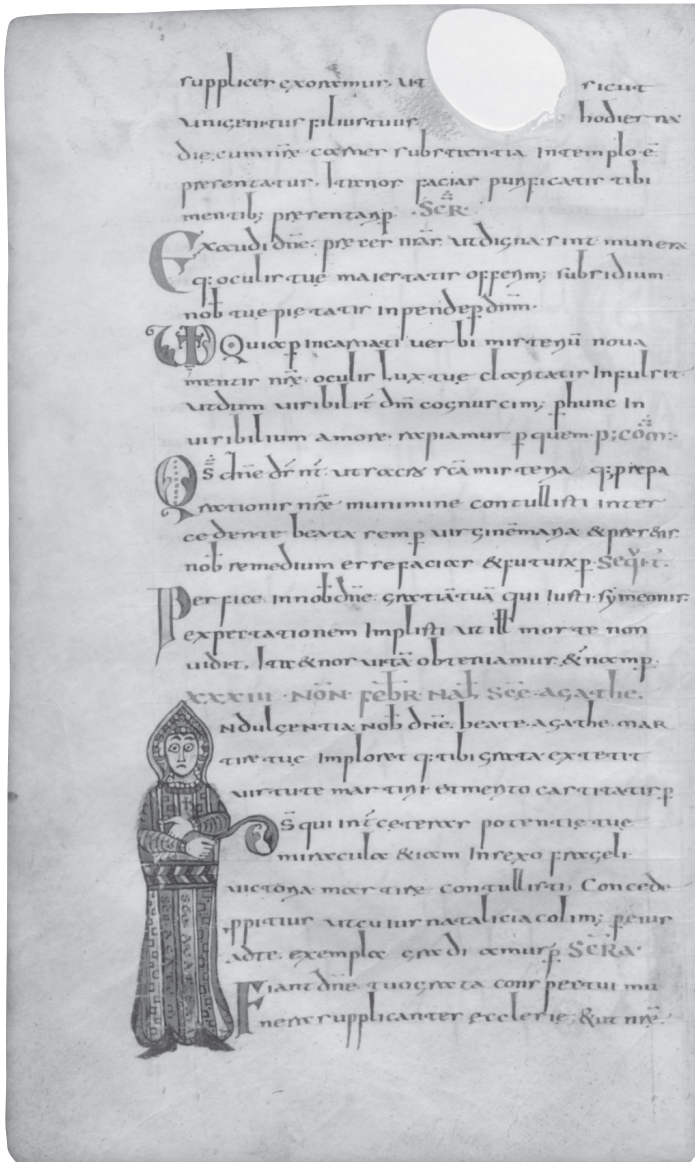 supplices exoramus. ut sicut
unigenitus filius tuus hodierna
die, cum nrę carnis substantia In templo ē
presentatus, Ita nos facias purificatis tibi
mentib; presentari p̄. SCR
Exaudi dn̄e. preces nr̄as. ut digna sint munera
q: oculis tuę maiestatis offerim; subsidium
nob tuę pietatis inpende p̄ dn̄m.
VD Quia p̄ Incarnati verbi misteriū noua
mentis nrę. oculis Lux tuę claritatis Infulsit.
ut dum visibilit dm̄ cognuscim; p hunc In
uisibilium amore. rapiamur p quem p; CŌM:
Q̄s dn̄e ds̄ nr̄. ut sacros̄c̄a misteria q; p repa
rationis nrę munimine contullisti inter
cedente beata semp̄ virginē maria & presens
nob remedium esse facias & futurū p̄. Seq̄it.
Perfice. In nob dn̄e. gratiā tuā qui Iusti symeonis
expectationem Implisti ut ill mortē non
uidit, Ita & nos uitā obteniamus ętnam p̄.
XXXIII · NON · febR · NaL SCE · AgatHe.
Indulgentia nob dn̄e. beate. agathe mar
tire tuę Imploret q: tibi grata extetit
virtute martirii et merito castitatis p̄
D̄s qui int ceteras potentię tuę
miracula & iam In sexo frageli
victoria martirę contullisti, Concede
p̄pitius ut cuius natalicia colim; p̄ eius
ad te. exempla gradiamur p̄. SCRA.
Fiant dn̄e. tuo grata conspectui mu
nera supplicantes ecclesię; & ut nrę.